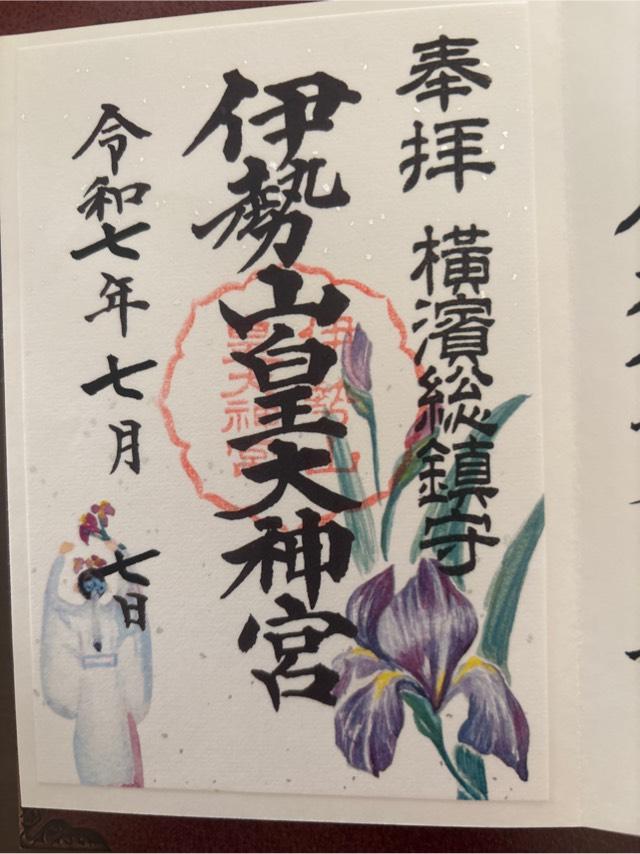 奉拝
横濱総鎮守
伊勢山皇大神宮
伊勢山
皇大神宮
令和七年七月七日